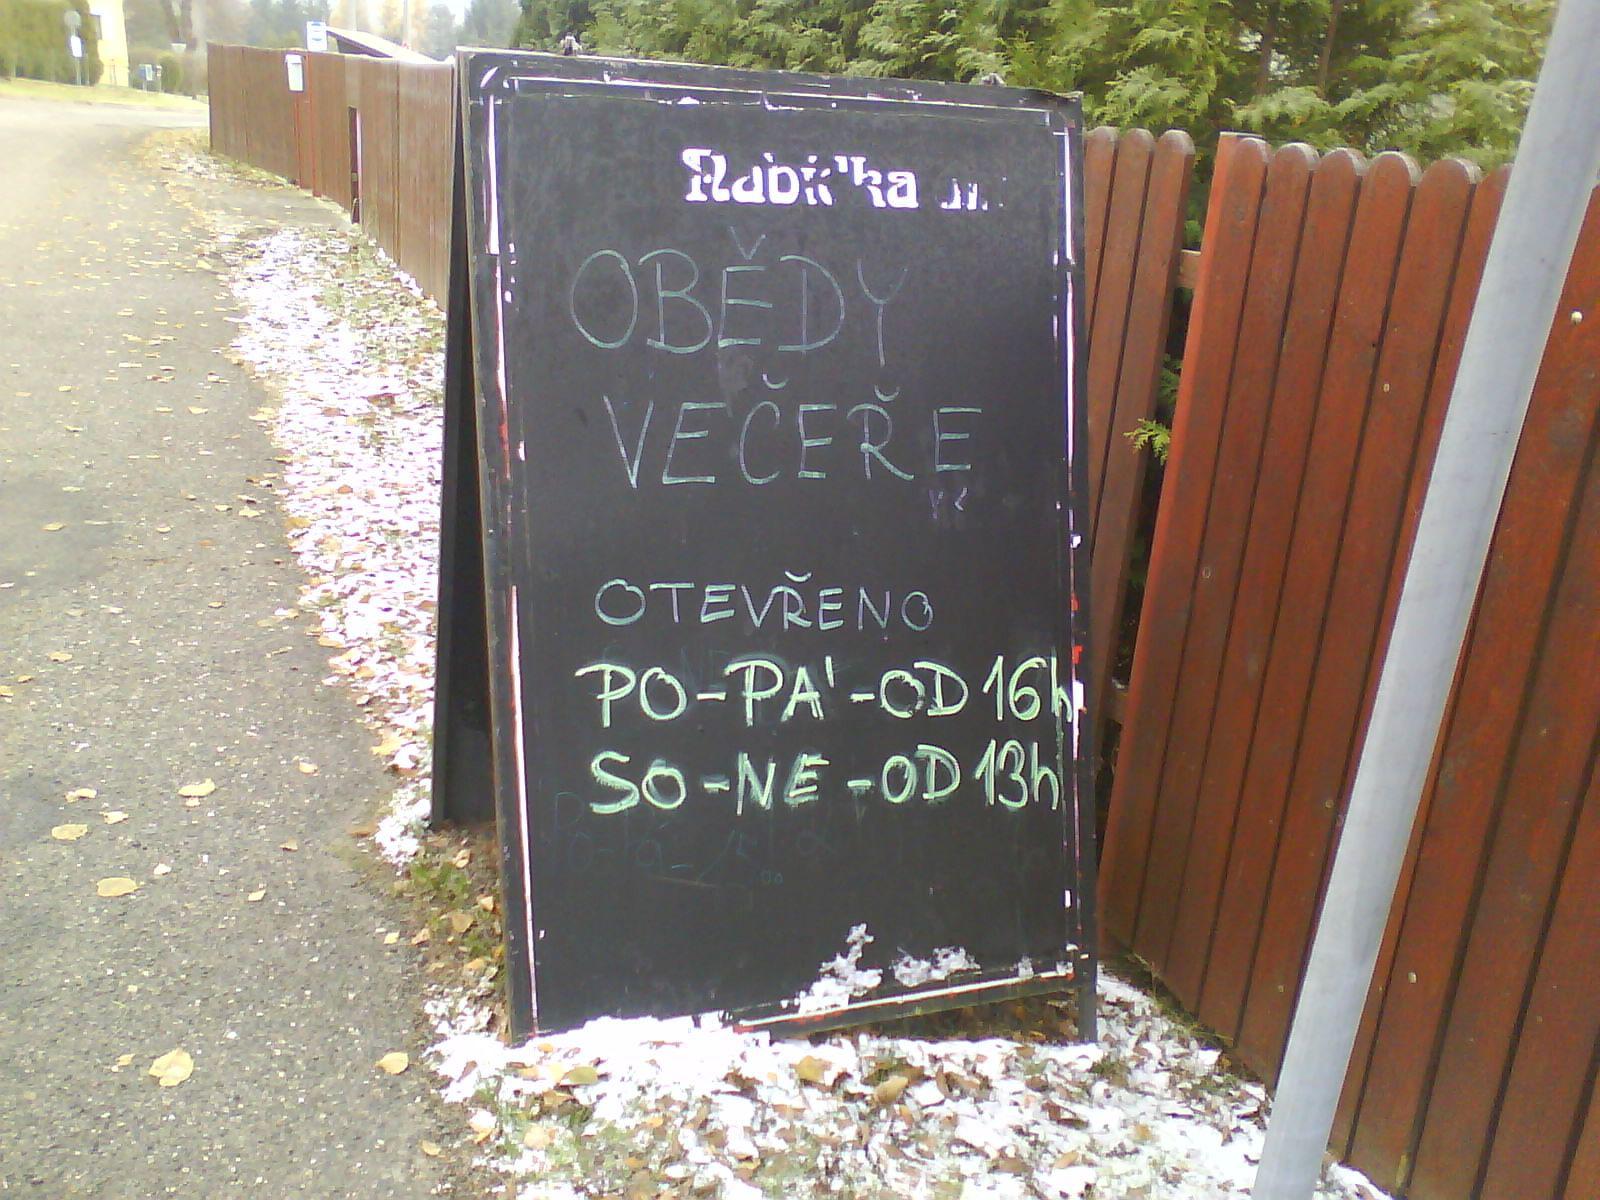 Nabídka
OBĚDY
VEČEŘE
OTEVŘENO
PO-PÁ-OD 16h
SO-NE-OD 13h